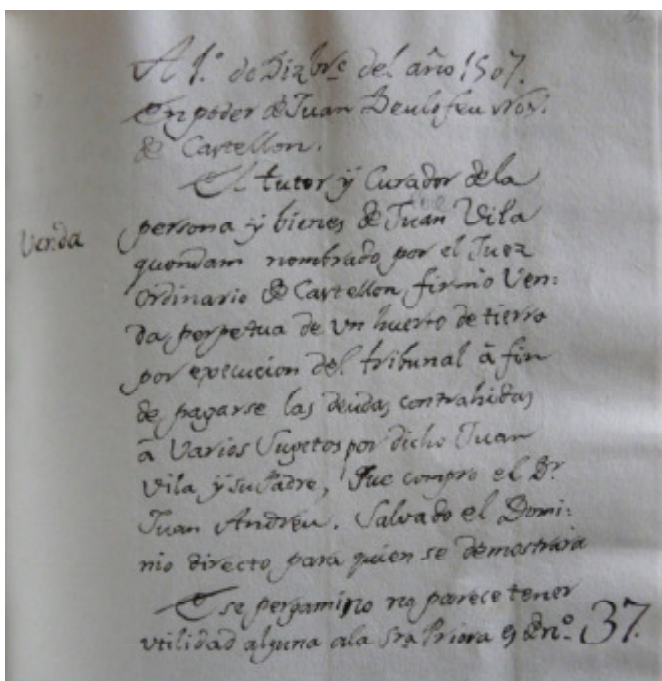 A 1.º de Dizbr.e del año 1507.
En poder de Juan Deulofeu Not.
de Castellon.
El tutor ÿ Curador de la
persona ÿ bienes de Juan Vila
Venda
quondam nombrado por el Juez
Ordinario de Castellon, firmó Ven:
da perpetua de un huerto de tierra
por execucion del tribunal â fin
de pagarse las deudas contrahidas
â Varios Sugetos por dicho Juan
Vila ÿ su Padre, que compro el Dr.
Juan Andreu. Salvado el Domi:
nio directo para quien se demostrara
Ese pergamino no parece tener
utilidad alguna a la Sra. Priora es de n.º 37.